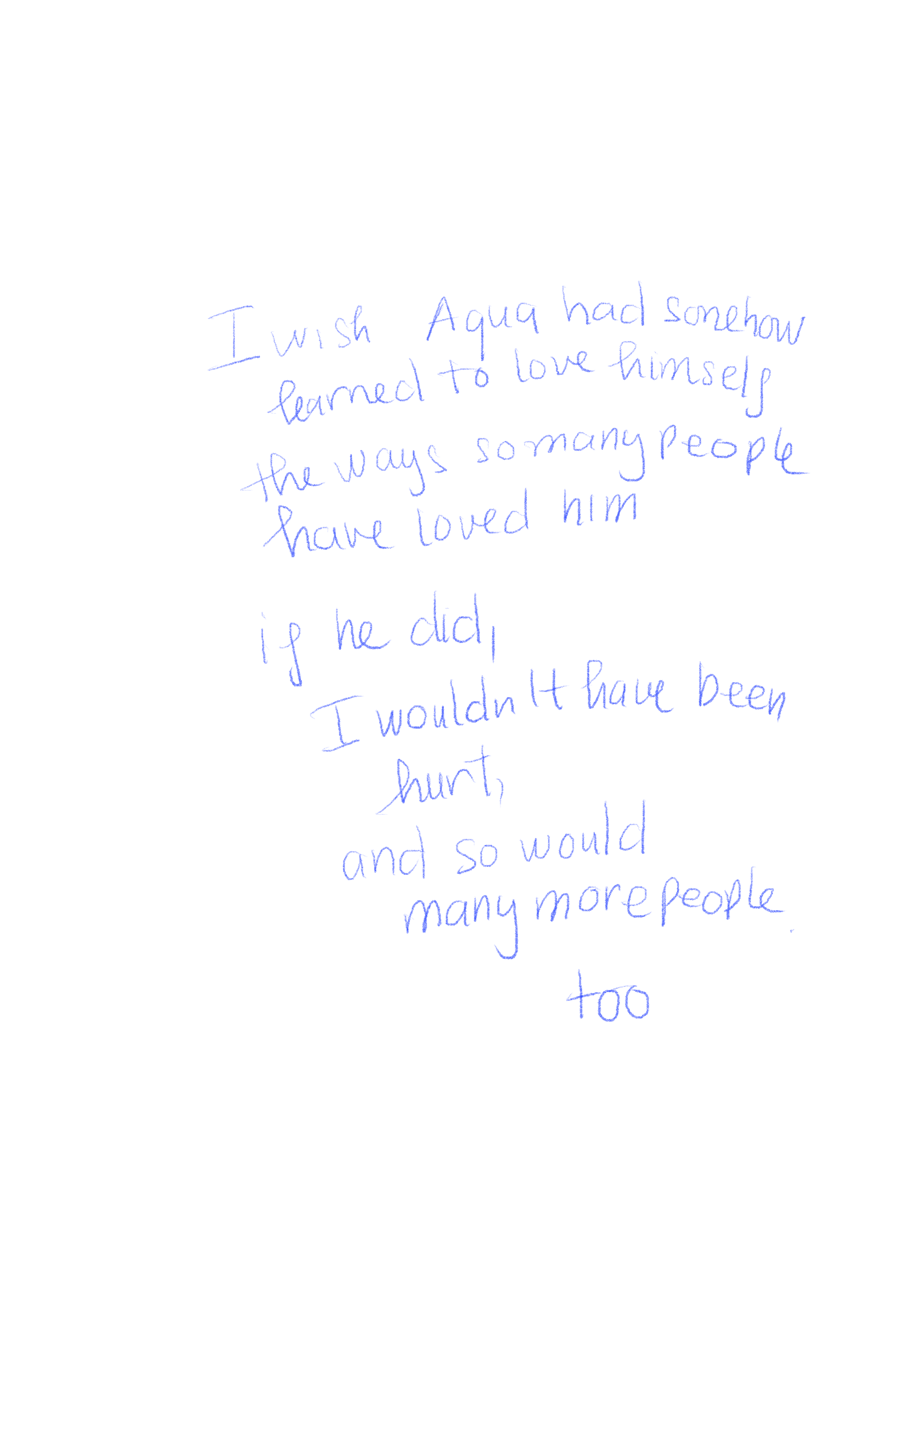 I wish Aqua had somehow
learned to love himself
the ways so many people
have loved him
if he did,
I wouldn't have been
hurt,
and so would
many more people.
too